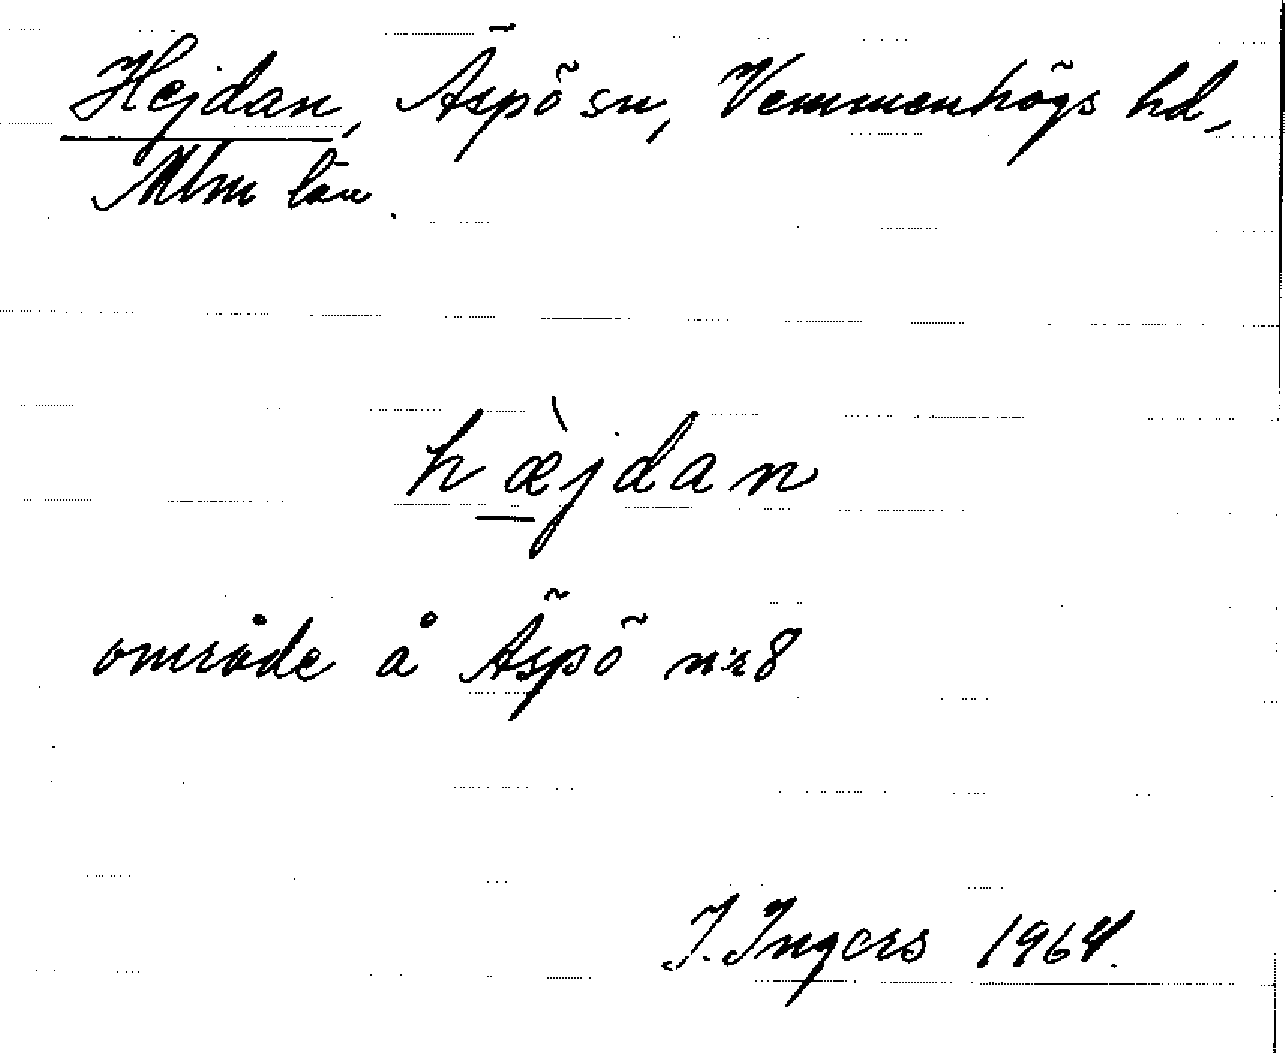 Hejdan, Äspö sn, Vemmenhögs hd,
Mlm län.
hæ̀jdan
område å Äspö nr 8
I. Ingers 1964.